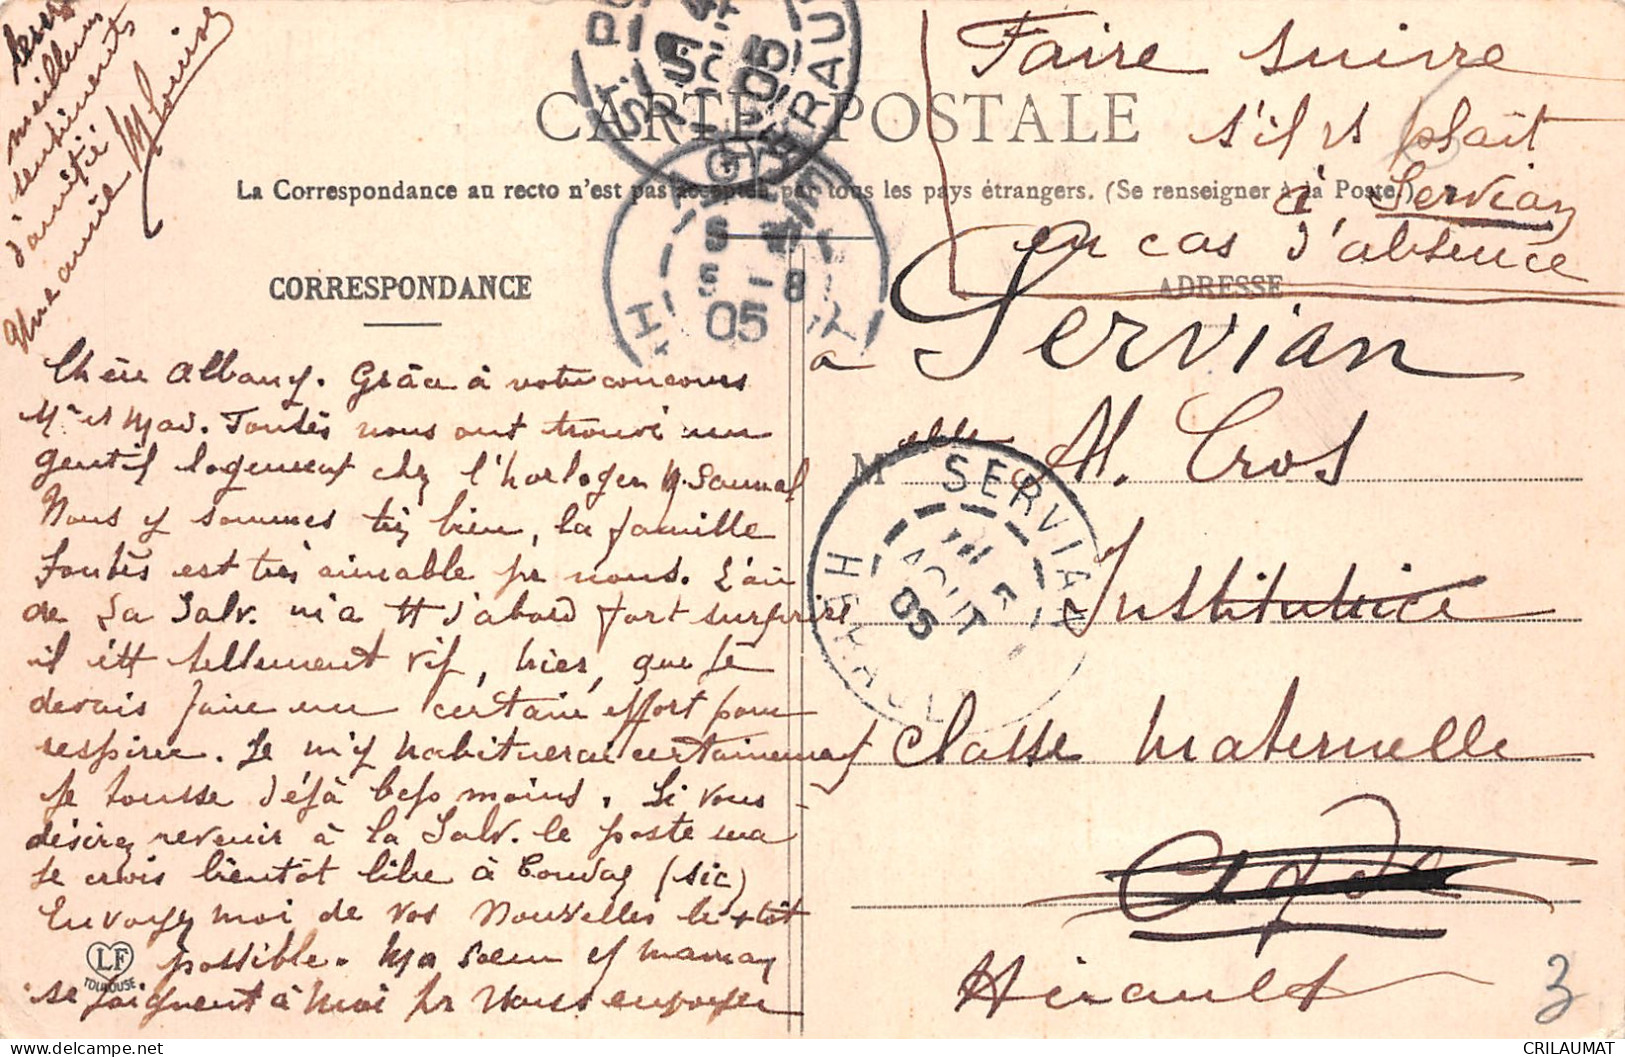 CARTE POSTALE
La Correspondance au recto n'est pas acceptée par tous les pays étrangers. (Se renseigner à la Poste.)
CORRESPONDANCE
ADRESSE
Faire suivre
s'il vs plaît
à Servian
en cas d'absence
à Servian
Melle Al. Cros
Institutrice
Classe Maternelle
Agde
Hérault
3
SERVIAN
HERAULT
AOUT
05
5 - 8
05
HERAULT
Chère Albany. Grâce à votre concours
Mr et Mad. Fontès nous ont trouvé un
gentil logement chez l'horloger M. Saumal
Nous y sommes très bien, la famille
Fontès est très aimable pr nous. L'air
de La Salv. m'a tt d'abord fort surprise
il étt tellement vif, hier, que je
devais faire un certain effort pour
respirer. Je m'y habituerai certainement
je tousse déjà bcp moins. Si vous
désirez revenir à la Salv. le poste sera
je crois bientôt libre à Condax (sic)
Envoyez moi de vos nouvelles le + tôt
possible. Ma soeur et maman
se joignent à moi pr vous envoyer
meilleurs
sentiments
d'amitié
Une amie M Louise
LF
TOULOUSE
CRILAUMAT
delcampe.net